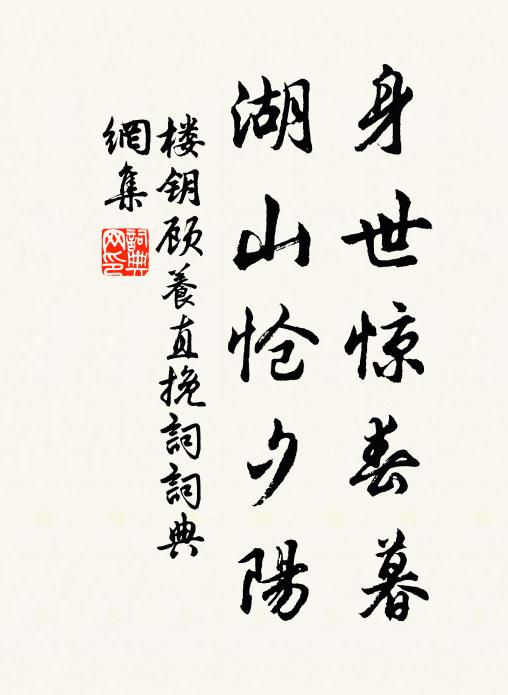 身世惊春暮
湖山怆夕陽
楼钥顾養直挽詞詞典
網集
詞典
网印